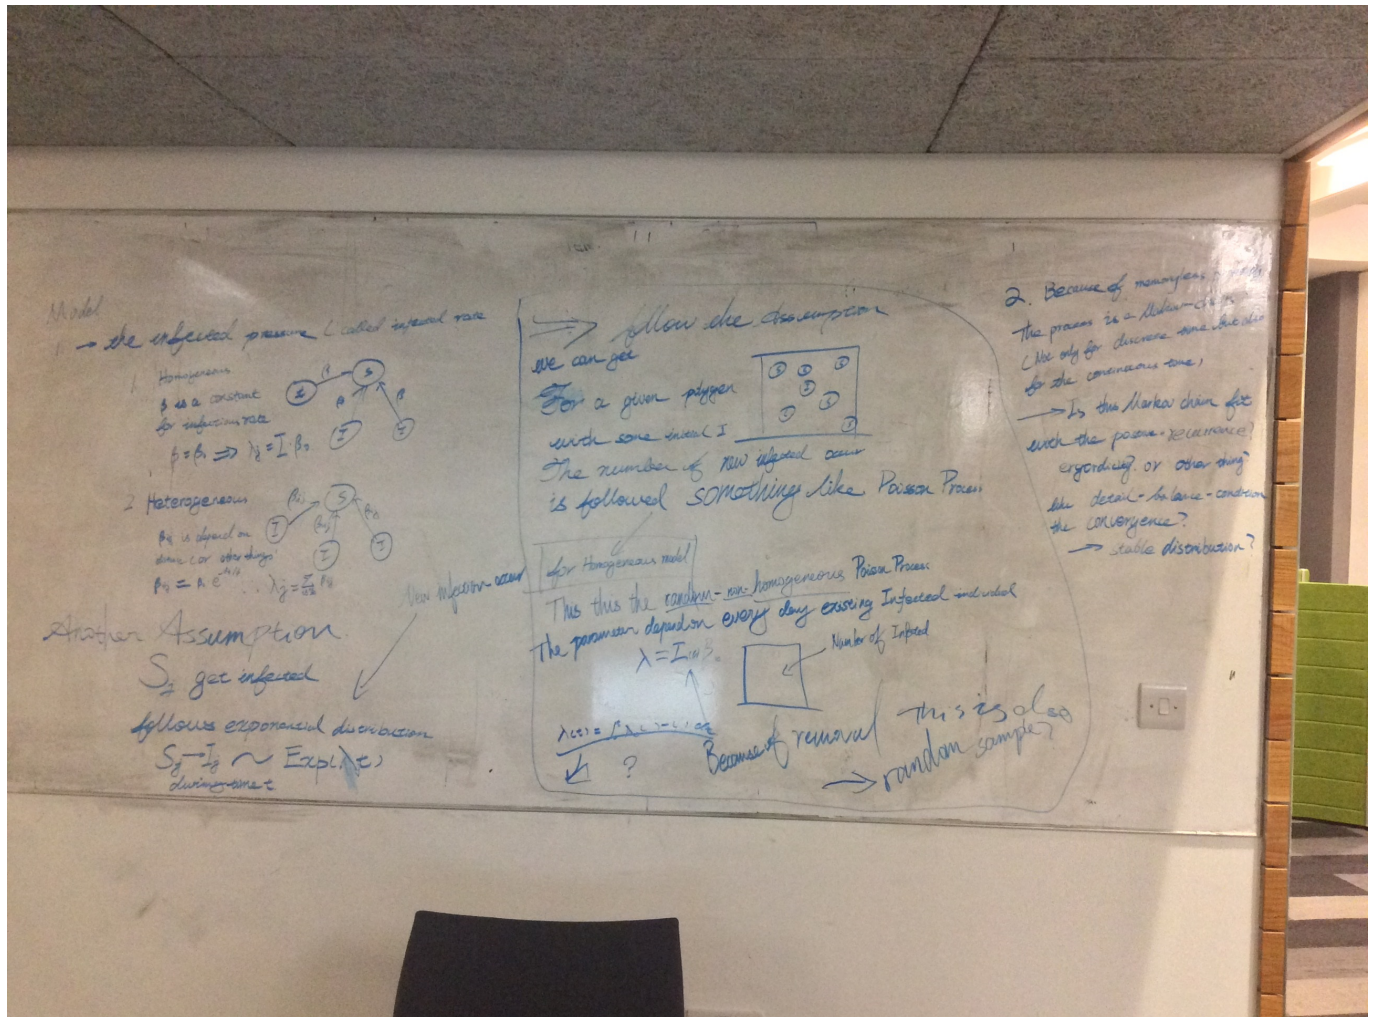 Model
1. → the infected pressure (called infected rate
1. Homogeneous
β is a constant
for infectious rate
β = β₀ ⇒ λj = I·β₀
I β S
β β
I I
2 Heterogeneous
βij is depend on
(or other things)
βij
S
I I I
Another Assumption.
Sj get infected
follows exponential distribution
Sj → Ij ~ Exp(λt)
during time t
New infection-occur
⇒ follow the Assumption
we can get
For a given polygen
with some initial I
The number of new infected occur
is followed somethings like Poisson Process
for Homogeneous model
This this the random-non-homogeneous Poison Process
The parameter depend on every day existing Infected-individual
λ = I
Number of Infected
?
Because of removal
This is also
→ random sample?
2. Because of memoryless
The process is a Markov-chain
(Not only for discrete time but also
for the continuous time)
→ Is this Markov chain fit
with the recurrence?
ergodicity? or other thing?
like detail-balance-condition
the convergence?
→ stable distribution?